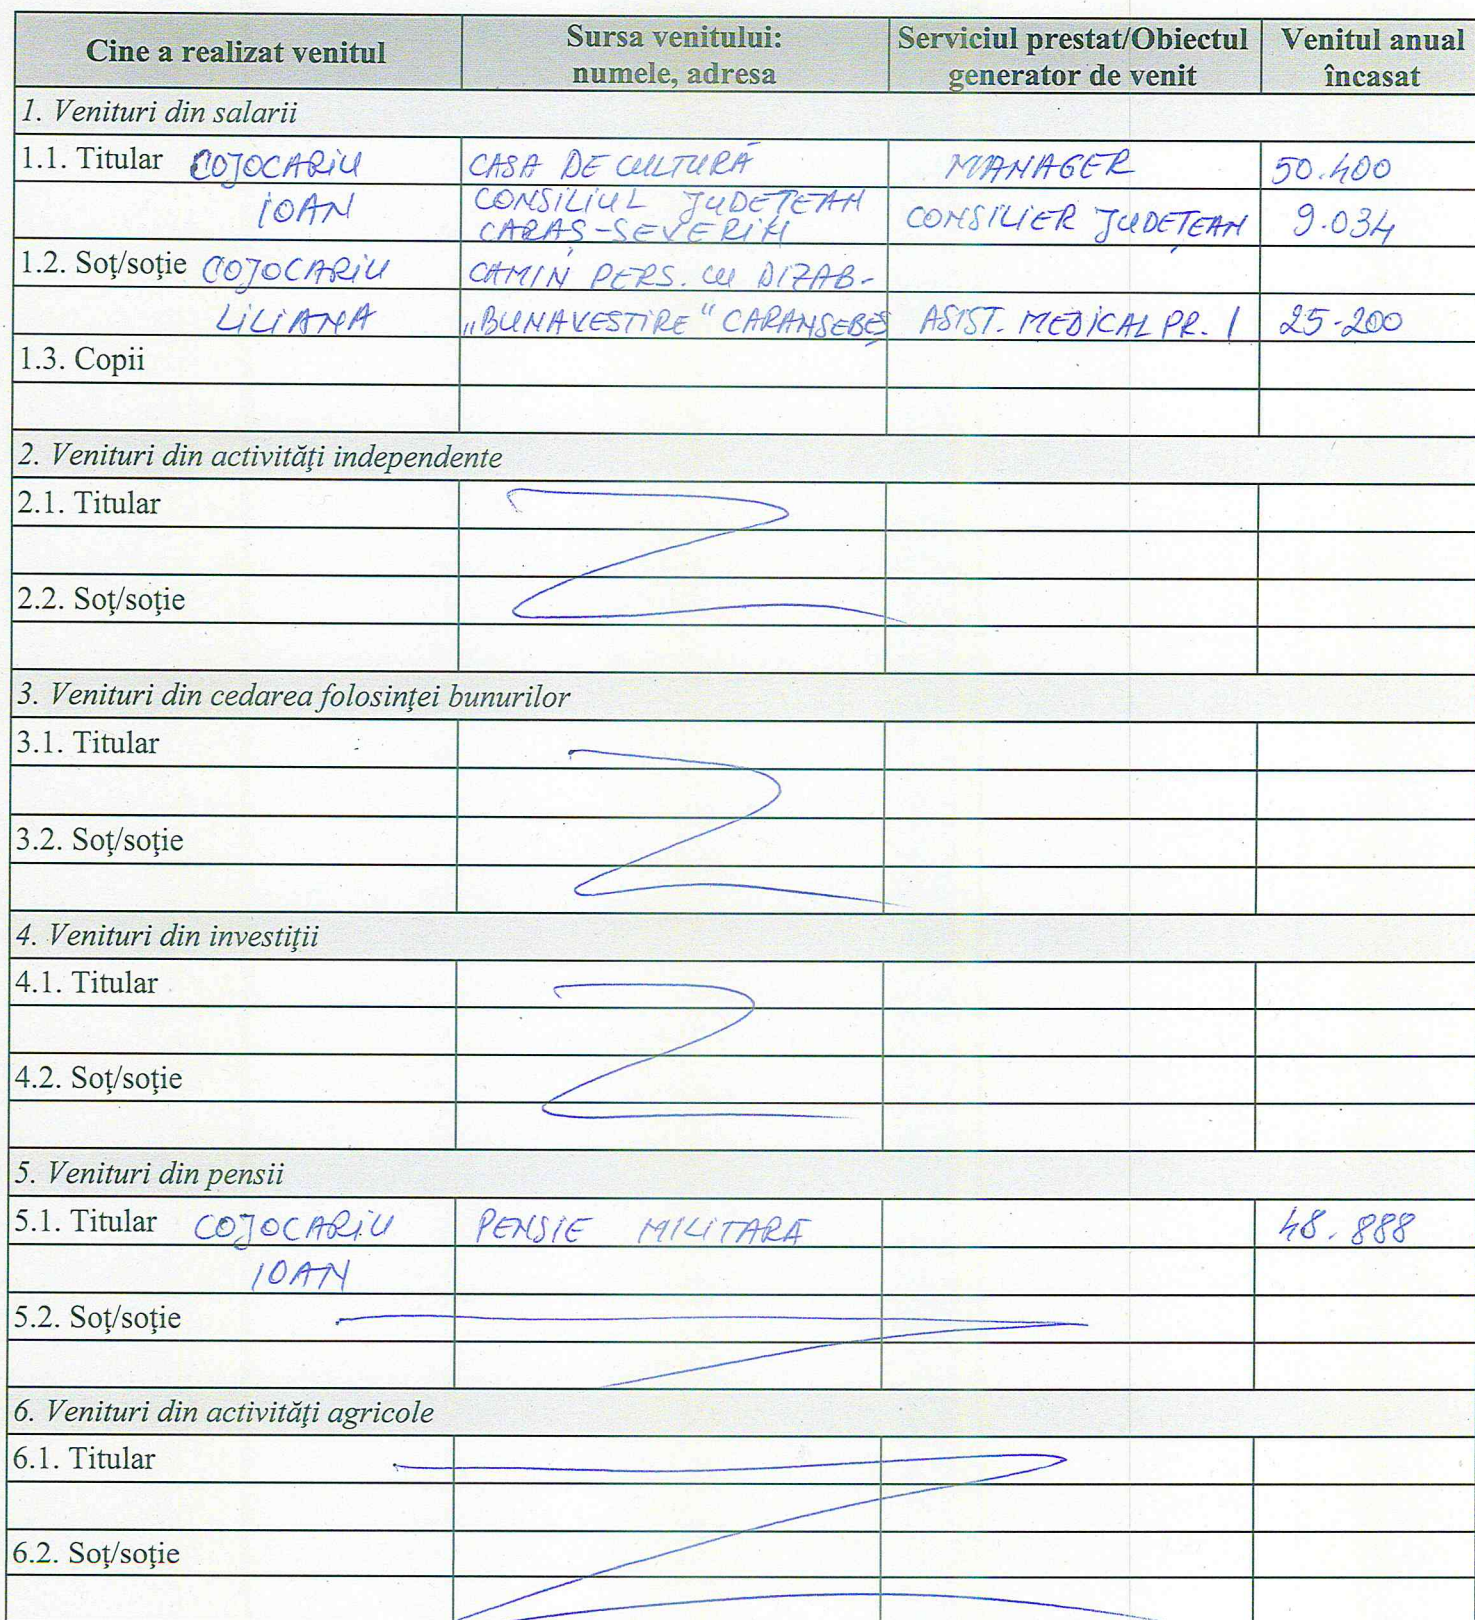 Cine a realizat venitul Sursa venitului: numele, adresa Serviciul prestat/Obiectul generator de venit Venitul anual încasat
1. Venituri din salarii
1.1. Titular COJOCARIU CASA DE CULTURĂ MANAGER 50.400
IOAN CONSILIUL JUDETEAN CARAȘ-SEVERIN CONSILIER JUDEȚEAN 9.034
1.2. Soţ/soţie COJOCARIU CAMIN PERS. CU DIZAB-
LILIANA „BUNAVESTIRE" CARANSEBEȘ ASIST. MEDICAL PR. 1 25-200
1.3. Copii
2. Venituri din activităţi independente
2.1. Titular
2.2. Soţ/soţie
3. Venituri din cedarea folosinţei bunurilor
3.1. Titular
3.2. Soţ/soţie
4. Venituri din investiţii
4.1. Titular
4.2. Soţ/soţie
5. Venituri din pensii
5.1. Titular COJOCARIU PENSIE MILITARĂ 48.888
IOAN
5.2. Soţ/soţie
6. Venituri din activităţi agricole
6.1. Titular
6.2. Soţ/soţie